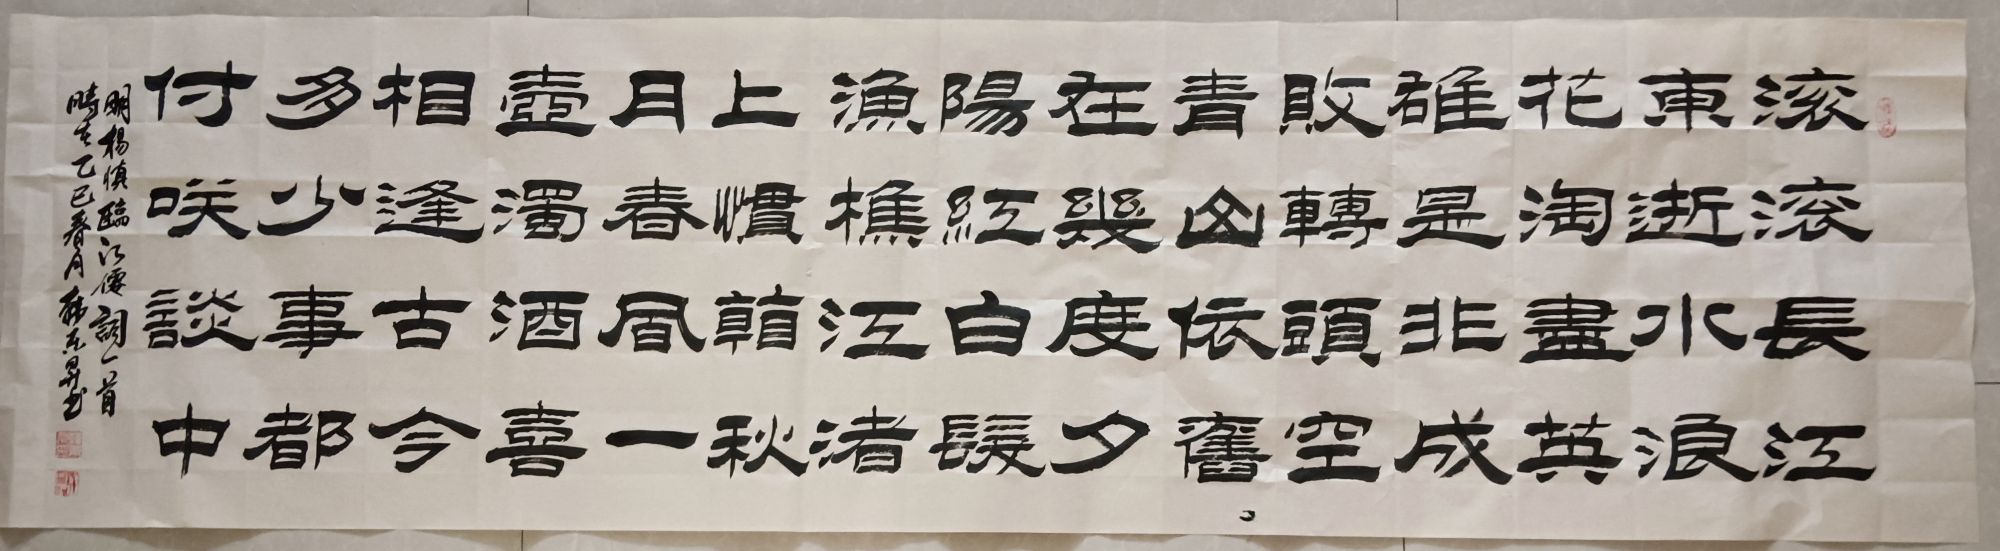 滚滚長江
東逝水浪
花淘盡英
雄是非成
敗轉頭空
青山依舊
在幾度夕
陽紅白髮
漁樵江渚
上慣看秋
月春風一
壺濁酒喜
相逢古今
多少事都
付咲談中
明楊慎臨江僊詞一首
時在乙巳春月韩昇书